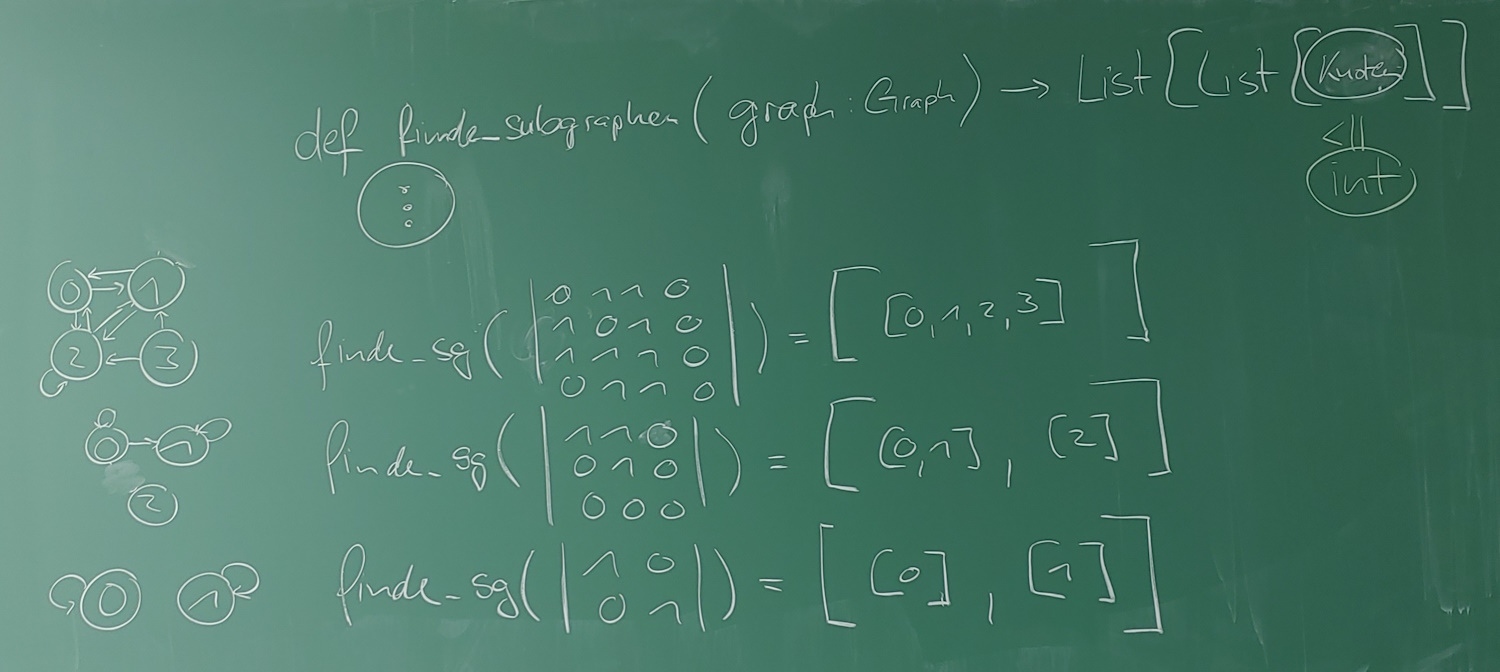 def finde_subgraphen(graph: Graph) → List[List[Knoten]]
<||
int
0 1 2 3
finde_sg(|0 1 1 0| ) = [[0,1,2,3]]
|1 0 1 0|
|1 1 1 0|
|0 1 1 0|
0 1 2
finde_sg(|1 1 0| ) = [[0,1], [2]]
|0 1 0|
|0 0 0|
0 1
finde_sg(|1 0| ) = [[0], [1]]
|0 1|